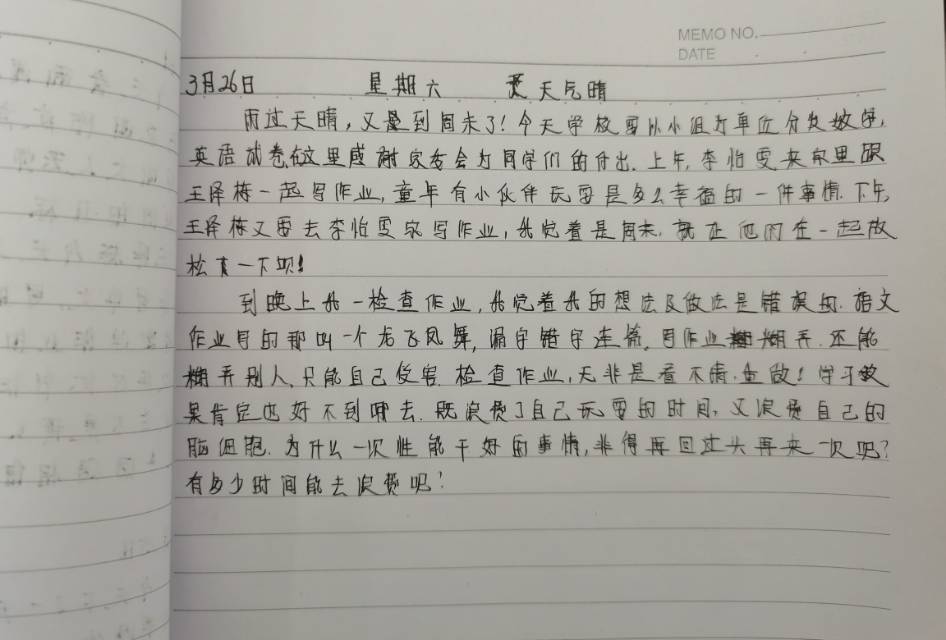 MEMO NO.
DATE
3月26日 星期六 天气晴
雨过天晴，又是到周末了！今天学校要从小组为单位分发数学，
英语试卷在这里感谢家委会为同学们的付出．上午，李怡雯来家里跟
王泽栋一起写作业，童年有小伙伴玩耍是多么幸福的一件事情．下午，
王泽栋又要去李怡雯家写作业，我觉着是周末，就让他们在一起放
松一下呗！
到晚上我一检查作业，我觉着我的想法及做法是错误的．语文
作业写的那叫一个龙飞凤舞，漏字错字连篇．写作业糊弄．还能
糊弄别人，只能自己受害．检查作业，无非是看不清，重做！学习效
果肯定也好不到哪去．既浪费了自己玩耍的时间，又浪费自己的
脑细胞．为什么一次性能干好的事情，非得再回过头再来一次呢？
有多少时间能去浪费呢！